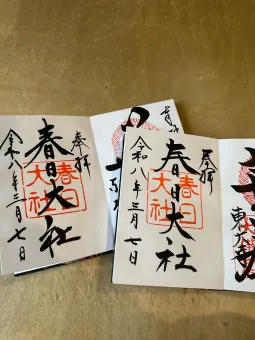 奉拝
春日大社
春日大社
令和八年三月七日
奉拝
春日大社
春日大社
令和八年三月七日